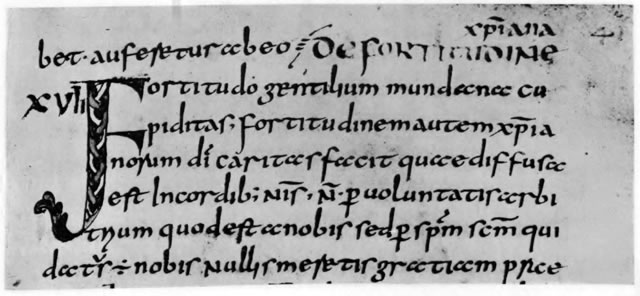 xp̄iana
bet· auferetur ab eo DE FORTITUDINE
XVII Fortitudo gentilium mundana cu
piditas; fortitudinem autem xp̄ia
norum dī caritas facit quae diffusa
est In cordib; nīs; n̄ p̄ voluntatis arbi
trium quod est a nobis sed p̄ sp̄m scm̄ qui
datus ÷ nobis Nullis meretis gratiam p̄ce